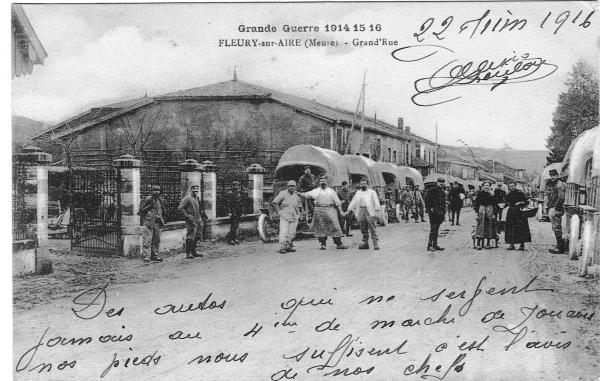 Grande Guerre 1914 15 16
FLEURY-sur-AIRE (Meuse) - Grand'Rue
22 Juin 1916
Des autos qui ne servent
jamais au 4ème de marche de
nos pieds nous suffisent c'est l'avis
de nos chefs